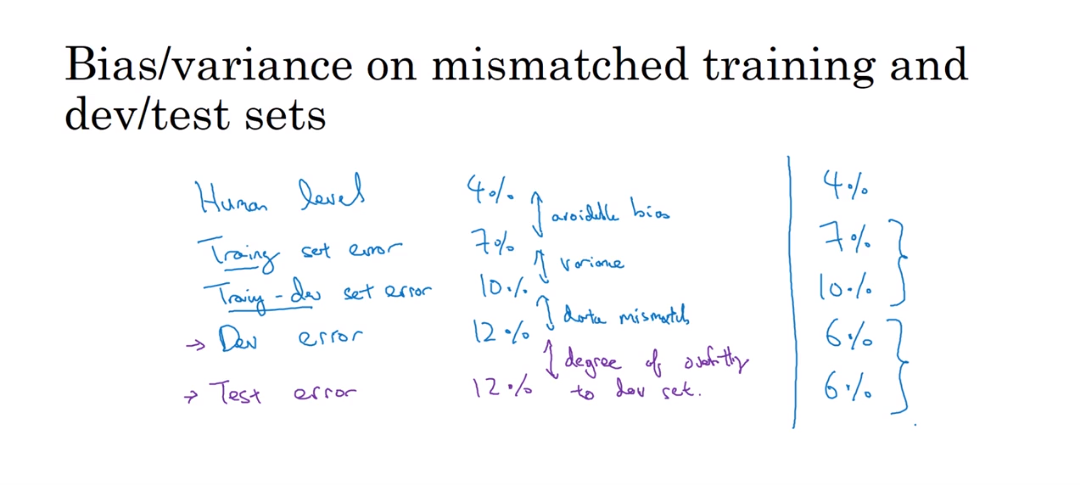 Bias/variance on mismatched training and
dev/test sets
Human level 4% 4%
avoidable bias
Training set error 7% 7%
variance
Training-dev set error 10% 10%
data mismatch
→ Dev error 12% 6%
degree of overfitting
→ Test error 12% to dev set. 6%